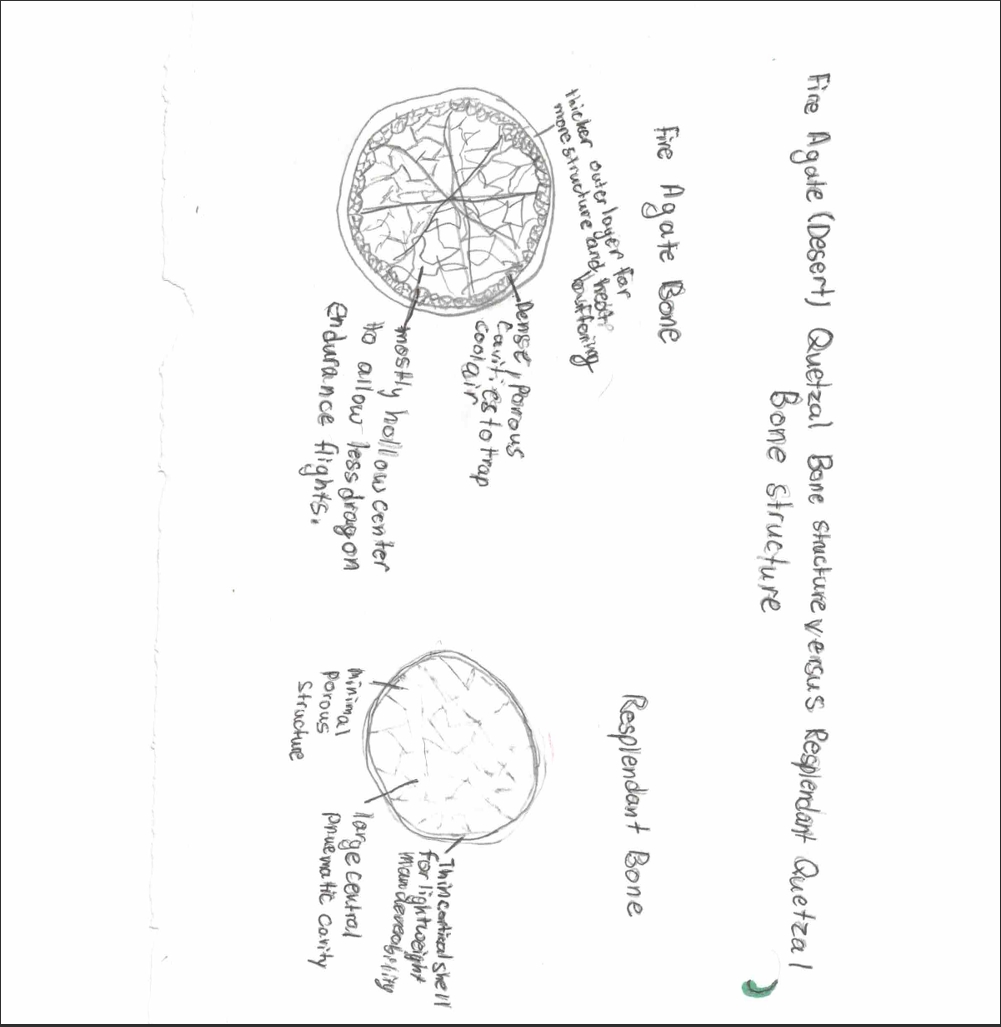 Fire Agate (Desert) Quetzal Bone structure versus Resplendant Quetzal
Bone structure
Fire Agate Bone
thicker outer layer for
more structure and heat
buffering
Dense, porous
cavities to trap
cool air
mostly hollow center
to allow less drag on
Endurance flights.
Resplendant Bone
Thin cortical shell
for lightweight
large central
pnuematic cavity
Minimal
Porous
structure